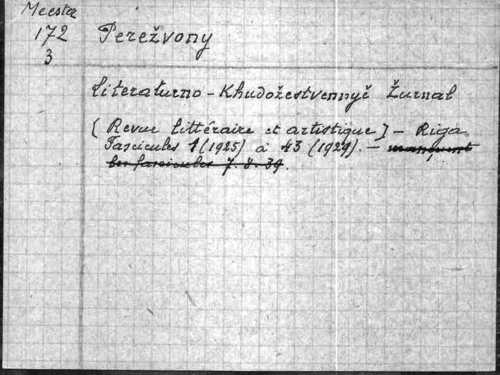 Meesta
172
3
Perežvony
literaturno - Khudožestvennyĭ Žurnal
(Revue littéraire et artistique) - Riga
Fascicules 1 (1925) à 43 (1929). - manquent
les fascicules 7. 8. 39.